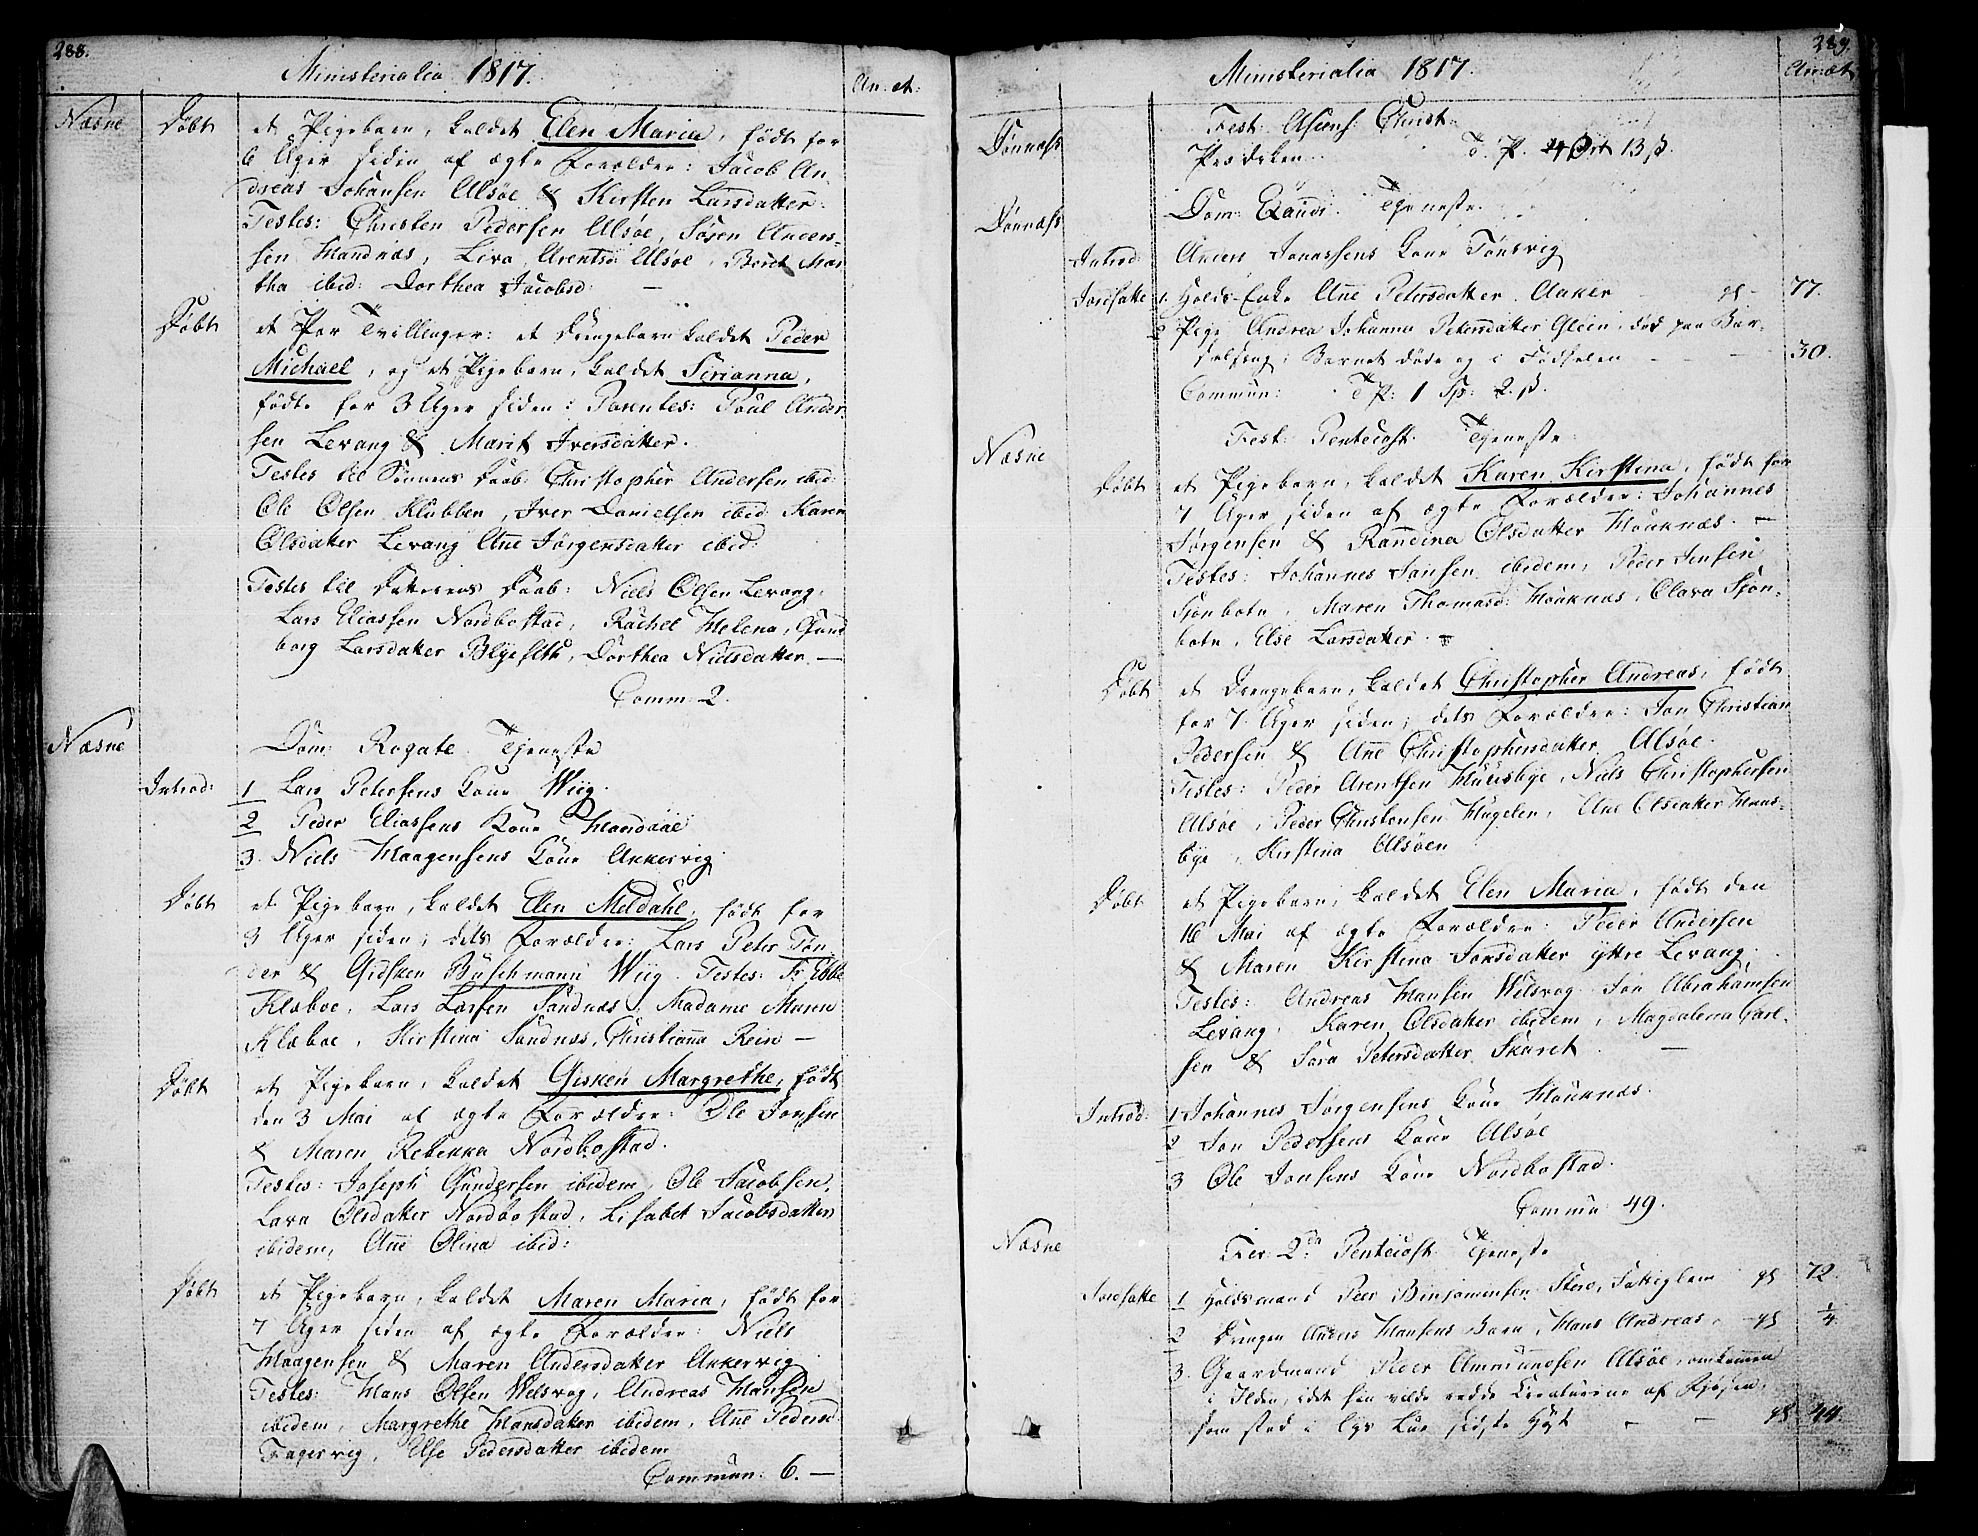 288.
Ministerialia 1817.
An. æt:
Næsne Døbt et Pigebarn, kaldet Elen Maria, født for
6 Uger siden af ægte Forældre: Jacob An
dreas Johansen Alsøe & Kirsten Larsdatter.
Testes: Christen Pedersen Alsøe, Søren Anders-
sen Handnæs, Liva Arentsd Alsøe, Berit Mar
tha ibid: Dorthea Jacobsd: —
Døbt et Par Tvillinger: et Drengebarn kaldet Peder
Michael, og et Pigebarn, kaldet Sirianna,
fødte for 3 Uger siden: Parentes: Poul Ander
sen Levang & Marit Iversdatter.
Testes til Sønnens Daab: Christopher Andersen ibid:
Ole Olsen Klubben, Iver Danielsen ibid: Karen
Olsdatter Levang Ane Jørgensdatter ibid:
Testes til Datterens Daab: Niels Olsen Levang,
Lars Eliassen Nordbostad, Rachel Helena, Gund
borg Larsdatter Blyeslth, Dorthea Nielsdatter —
Comm: 2.
Næsne Dom: Rogate. Tjeneste
Introd: 1 Lars Petersens Kone Wiig.
2 Peder Eliassens Kone Handaae
3. Niels Haagensens Kone Ankervig
Døbt et Pigebarn, kaldet Elen Meldahl, født for
3 Uger siden; dets Forældre: Lars Peter Tøn
der & Gidsken Buschmann Wiig. Testes: Fr: Ebbe
Klæboe, Lars Larsen Sandnæs, Madame Maren
Klæboe, Kirstina Sandnæs, Christianna Rein —
Døbt et Pigebarn, kaldet Gisken Margrethe, født
den 3 Mai af ægte Forældre: Ole Jonsen
& Maren Rebekka Nordbostad.
Testes: Joseph Gundersen ibidem, Ole Jacobsen,
Lava Olsdatter Nordbostad, Lisabet Jacobsdatter
ibidem, Ane Olina ibid:
Døbt et Pigebarn, kaldet Maren Maria, født for
7 Uger siden af ægte Forældre: Niels
Haagensen & Maren Andersdatter Ankervig
Testes: Hans Olsen Welsvog, Andreas Hansen
ibidem, Margrethe Hansdatter ibidem, Ane Pedersd
Fagervig, Else Pedersdatter ibidem
Commun: 6. —
289.
Ministerialia 1817.
An: æt
Fest: Asens: Christ:
Dønnæs Prædiken .. T. P. 4 Ort 13 ß.
Dønnæs Dom: Exaudi. Tjeneste.
Introd: Anders Jonassens Kone Tonsvig
Jordfæste 1. Holds-Enke Ane Petersdatter Aaker — 77.
2 Pige Andrea Johanna Petersdatter Gleen, død paa Bar-
selseng; Barnet døde og i Fødselen — — 30.
Commun: T. P: 1 Sp: 2. ß.
Fest: Pentecost: Tjeneste
Næsne
Døbt et Pigebarn, kaldet Karen Kirstina, født for
7 Uger siden af ægte Forældre: Johannes
Jørgensen & Randina Olsdatter Houknæs. —
Testes: Johannes Jansen ibidem, Peder Jensen
Sjonbotn, Maren Thomasd: Houknæs, Olava Sjon-
botn, Else Larsdatter. —
Døbt et Drengebarn, kaldet Christopher Andreas, født
for 7 Uger siden; dets Forældre: Jon Christian
Pedersen & Ane Christophersdatter Alsøe.
Testes: Peder Arentsen Huusbye, Niels Christophersen
Alsøe, Peder Christensen Hugelen, Ane Olsdatter Huus-
bye, Kirstina Alsøen
Døbt et Pigebarn, kaldet Elen Maria, født den
16 Mai af ægte Forældre: Peder Andersen
& Maren Kirstina Jonsdatter yttre Levang,
Testes: Andreas Hansen Welsvog, Jon Abrahamsen
Levang, Karen Olsdatter ibidem, Magdalena Carl-
sen & Sara Petersdatter Skaret. —
Introd: 1 Johannes Jørgensens Kone Houknæs.
2 Jon Pedersens Kone Alsøe
3 Ole Jonsens Kone Nordbostad.
Commu: 49.
Næsne Fer: 2da Pentecost: Tjeneste
Jordfæste 1 Holdsmand Peer Binjaminsen Skro, Fattiglem 72.
2 Drengen Anders Hansens Barn, Hans Andreas, — 1/4
3. Gaardmand Peder Ammundsen Alsøe, omkommen
i Ilden, idet han vilde redde Creaturene af Fjøsen,
som stod i lys Lue sidste Høst — — 44.